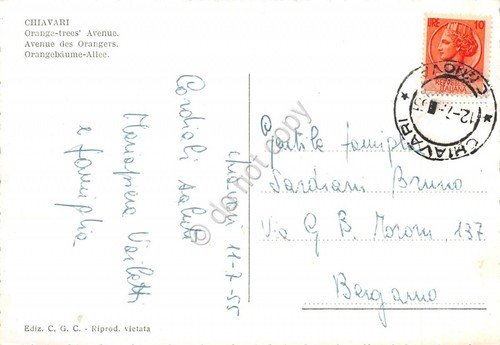 CHIAVARI
Orange-trees' Avenue.
Avenue des Orangers.
Orangebäume-Allee.
LIRE 10
REPUBBLICA
ITALIANA
CHIAVARI
12-7-
do not copy
Chiavari 11-7-55
Cordiali saluti
Mariapiera
e famiglia
Gentile famiglia
Sardiani Bruno
Via G B Moroni, 137
Bergamo
Ediz. C. G. C. - Riprod. vietata